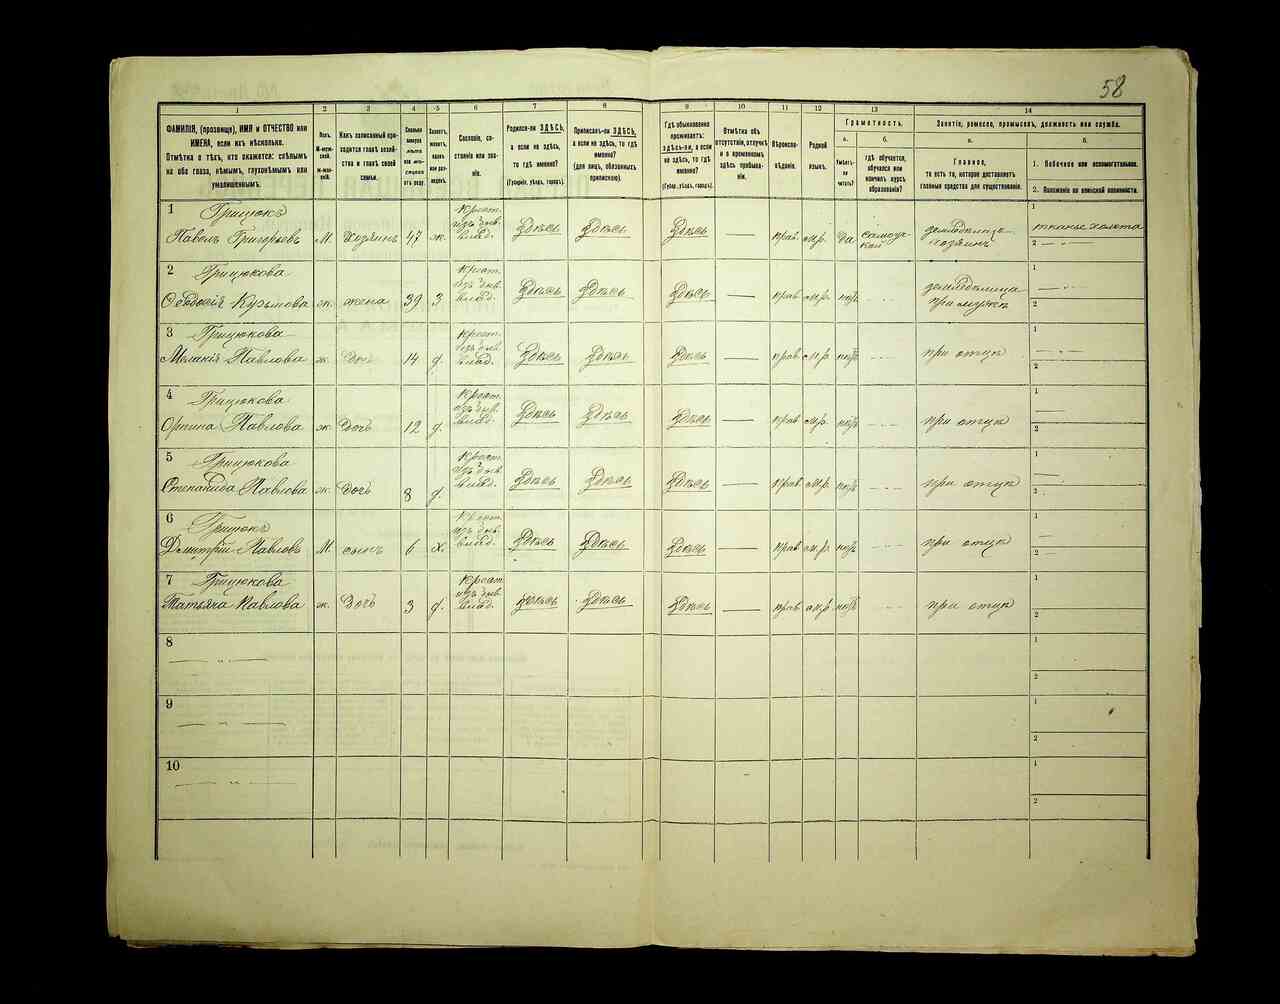 58
1 2 3 4 5 6 7 8 9 10 11 12 13 14
ФАМИЛІЯ, (прозвище), ИМЯ и ОТЧЕСТВО или ИМЕНА, если ихъ нѣсколько.
Отмѣтка о тѣхъ, кто окажется: слѣпымъ на оба глаза, нѣмымъ, глухонѣмымъ или умалишеннымъ.
Полъ.
М-мужской.
Ж-женскій.
Какъ записанный приходится главѣ хозяйства и главѣ своей семьи.
Сколько минуло лѣтъ или мѣсяцевъ отъ роду.
Холостъ, женатъ, вдовъ или разведенъ.
Сословіе, состояніе или званіе.
Родился-ли ЗДѢСЬ, а если не здѣсь, то гдѣ именно?
(Губернія, уѣздъ, городъ).
Приписанъ-ли ЗДѢСЬ, а если не здѣсь, то гдѣ именно?
(для лицъ, обязанныхъ припискою).
Гдѣ обыкновенно проживаетъ: ЗДѢСЬ-ли, а если не здѣсь, то гдѣ именно?
(Губер., уѣздъ, городъ).
Отмѣтка объ отсутствіи, отлучкѣ и о временномъ здѣсь пребываніи.
Вѣроисповѣданіе.
Родной языкъ.
Грамотность.
а.
Умѣетъ-ли читать?
б.
гдѣ обучается, обучался или кончилъ курсъ образованія?
Занятіе, ремесло, промыселъ, должность или служба.
а.
Главное,
то есть то, которое доставляетъ главныя средства для существованія.
б.
1. Побочное или вспомогательное.
2. Положеніе по воинской повинности.
1 Грицюкъ
Павелъ Григорьевъ М. хозяинъ 47 ж. Крест. изъ быв. влад. Здѣсь Здѣсь Здѣсь — прав. м.р. да самоучкой земледѣлецъ хозяинъ 1 тканье холста
2 — " —
2 Грицюкова
Евдокія Кузьмова ж. жена 39 з Крест. изъ быв. влад. Здѣсь Здѣсь Здѣсь — прав м.р. нѣтъ земледѣлица при мужѣ 1 — " —
2
3 Грицюкова
Меланія Павлова ж. дочь 14 д. Крест. изъ быв. влад. Здѣсь Здѣсь Здѣсь — прав м.р. нѣтъ при отцѣ 1 — " —
2
4 Грицюкова
Орина Павлова ж. дочь 12 д. Крест. изъ быв. влад. Здѣсь Здѣсь Здѣсь — прав м.р. нѣтъ при отцѣ 1
2
5 Грицюкова
Степанида Павлова ж. дочь 8 д. Крест. изъ быв. влад. Здѣсь Здѣсь Здѣсь — прав м.р. нѣтъ при отцѣ 1
2
6 Грицюкъ
Димитрій Павловъ М. сынъ 6 х. Крест. изъ быв. влад. Здѣсь Здѣсь Здѣсь — прав м.р. нѣтъ при отцѣ 1
2
7 Грицюкова
Татьяна Павлова ж. дочь 3 д. Крест. изъ быв. влад. Здѣсь Здѣсь Здѣсь — прав м.р. нѣтъ при отцѣ 1
2
8 — " — 1
2
9 — " — 1
2
10 — " — 1
2